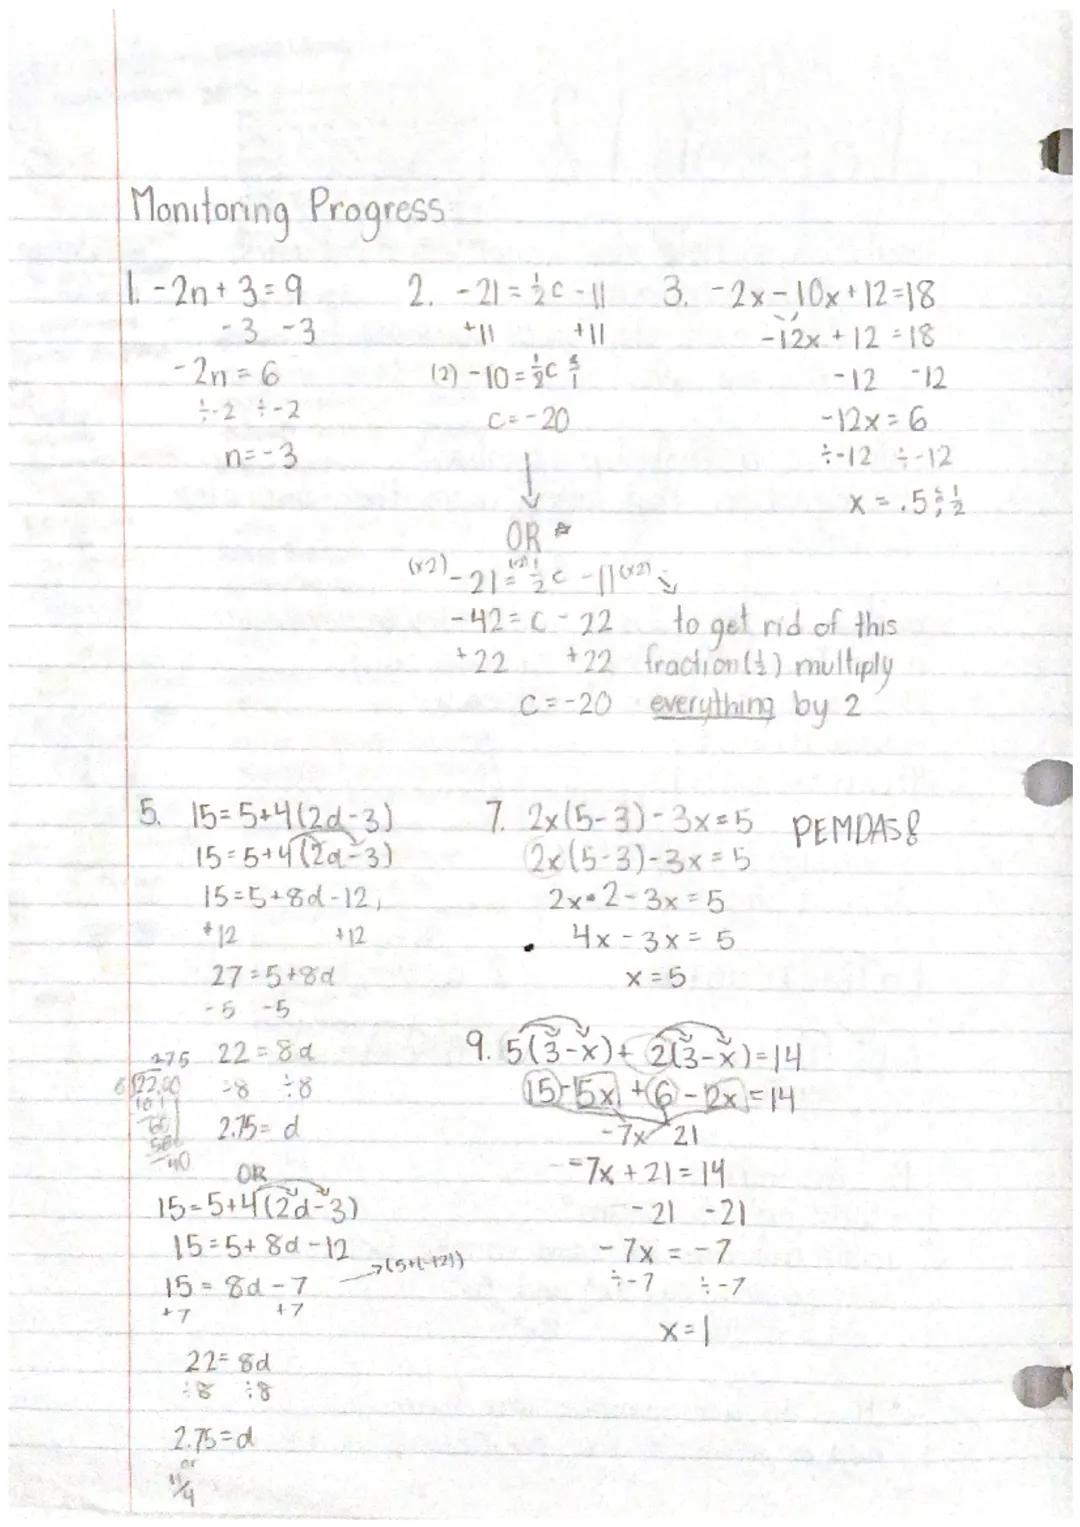 Monitoring Progress
1. -2n + 3 = 9
-3 -3
-2n = 6
÷-2 ÷-2
n = -3
2. -21 = 1/2 c - 11
+11 +11
(2) -10 = 1/2 c
c = -20
OR
(x2) -21 = 1/2 c - 11 (x2)
-42 = c - 22
+22 +22
c = -20
to get rid of this
fraction (1/2) multiply
everything by 2
3. -2x - 10x + 12 = 18
-12x + 12 = 18
-12 -12
-12x = 6
÷-12 ÷-12
x = .5; 1/2
5. 15 = 5 + 4(2d - 3)
15 = 5 + 4(2d - 3)
15 = 5 + 8d - 12
+12 +12
27 = 5 + 8d
-5 -5
22 = 8d
÷8 ÷8
2.75 = d
OR
15 = 5 + 4(2d - 3)
15 = 5 + 8d - 12
15 = 8d - 7 → (5+(-12))
+7 +7
22 = 8d
÷8 ÷8
2.75 = d
or
11/4
7. 2x(5-3) - 3x = 5 PEMDAS
2x(5-3) - 3x = 5
2x • 2 - 3x = 5
4x - 3x = 5
x = 5
9. 5(3-x) + 2(3-x) = 14
15 - 5x + 6 - 2x = 14
-7x 21
-7x + 21 = 14
-21 -21
-7x = -7
÷-7 ÷-7
x = 1